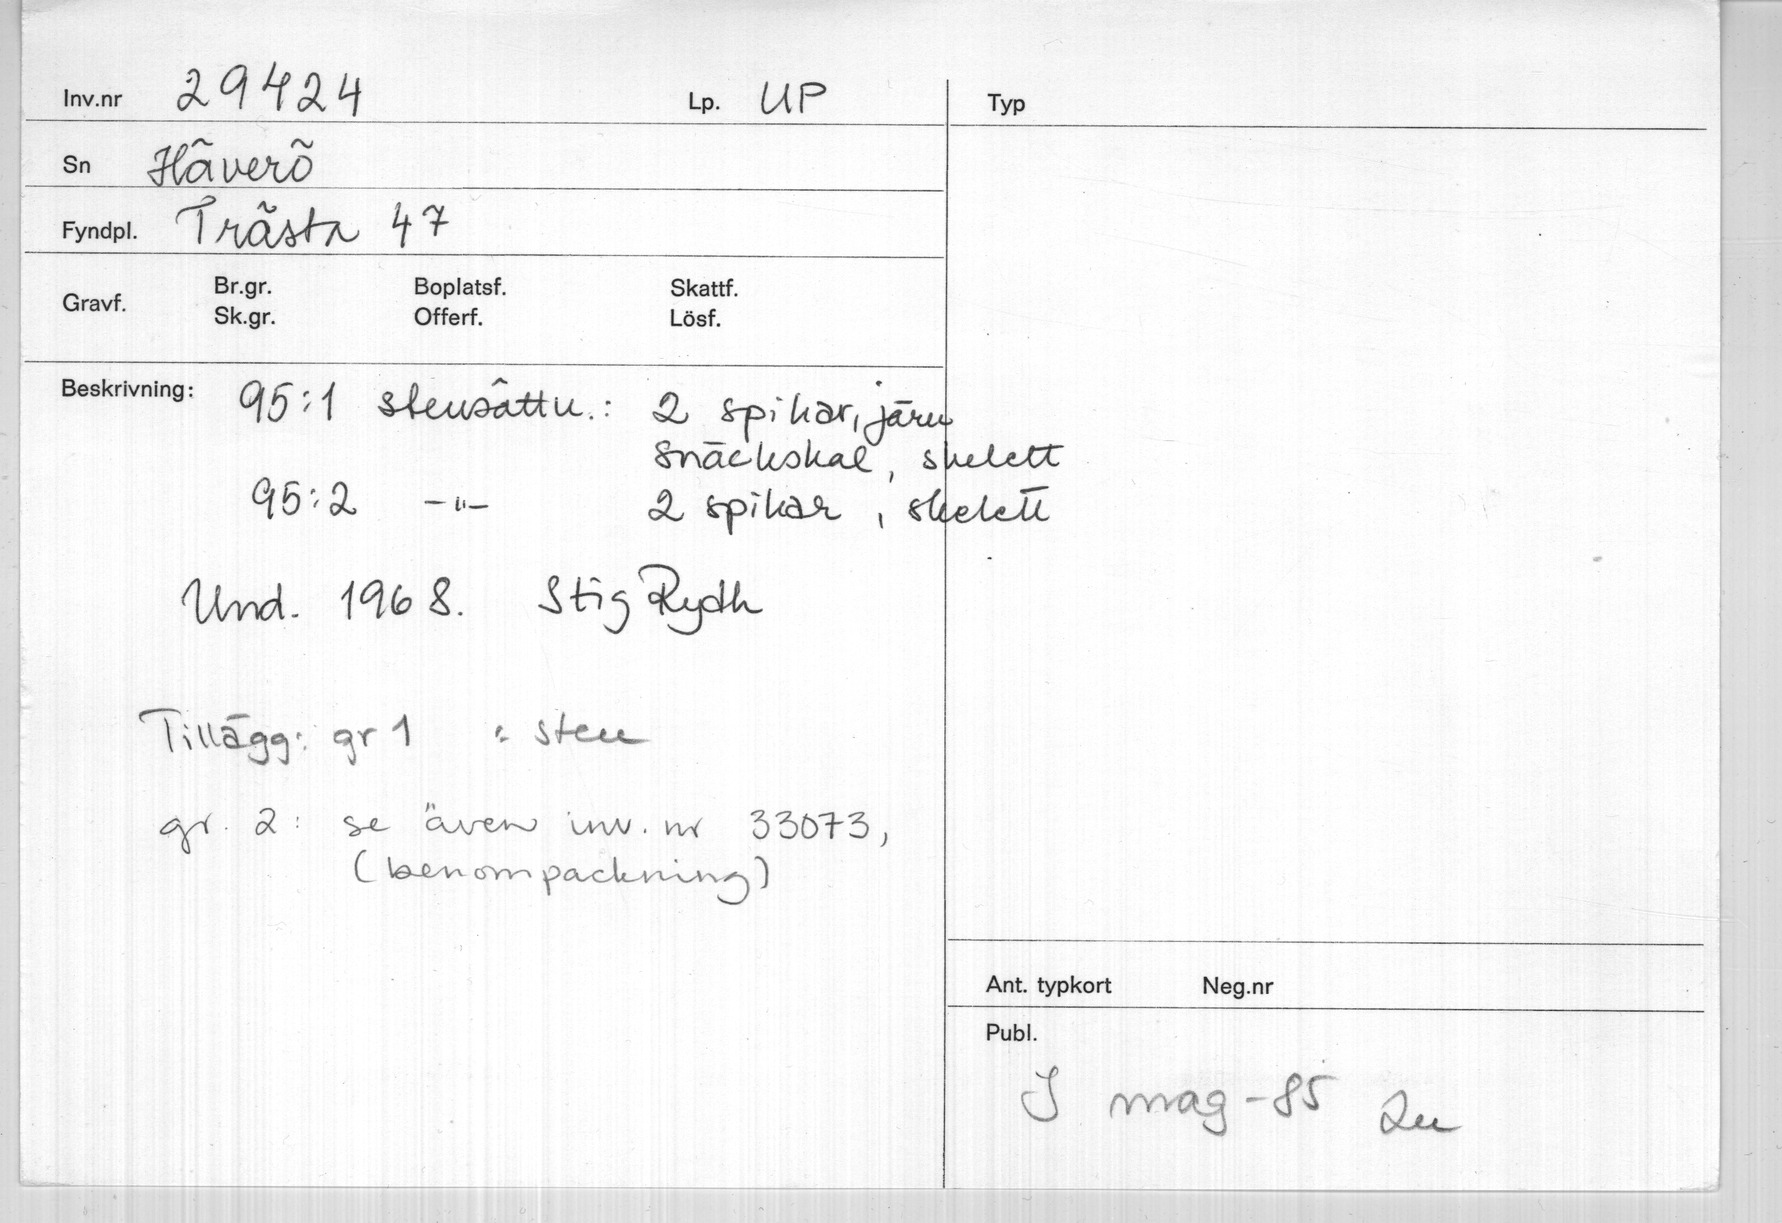 Inv.nr 29424 Lp. UP
Sn Häverö
Fyndpl. Trästa 47
Gravf. Br.gr. Boplatsf. Skattf.
Sk.gr. Offerf. Lösf.
Beskrivning: 95:1 stensättn.: 2 spikar, järn
snäckskal, skelett
95:2 -"- 2 spikar, skelett
Und. 1968. Stig Rydh
Tillägg: gr 1 : sten
gr. 2: se även inv. nr 33073,
(benompackning)
Typ
Ant. typkort Neg.nr
Publ.
I mag -85